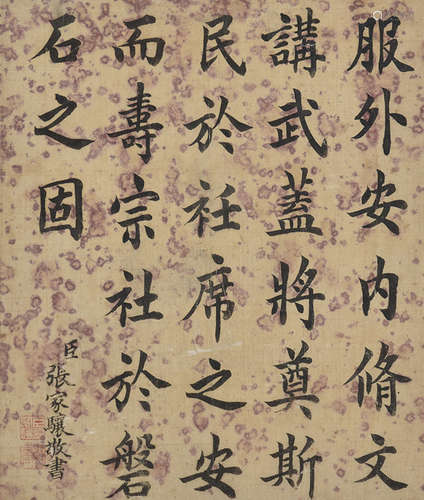 服外安内脩文
講武蓋將奠斯
民於衽席之安
而壽宗社於盤
石之固
臣張家驤敬書